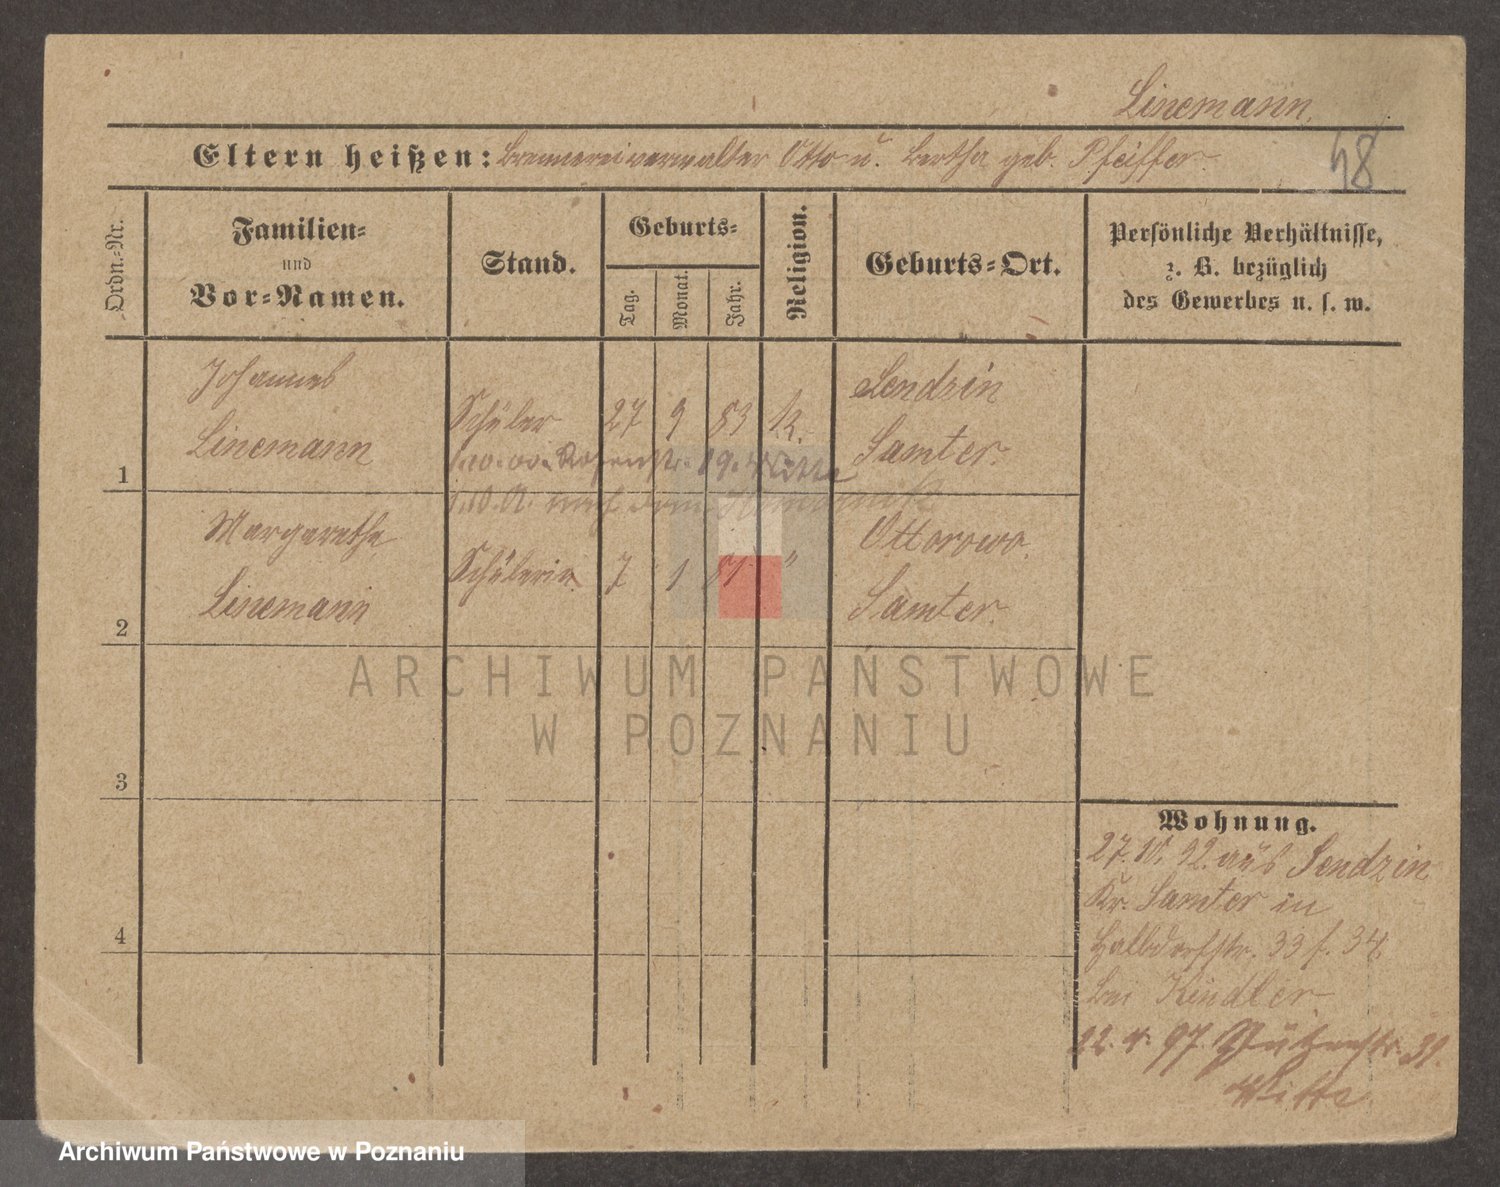 Linemann.
Eltern heißen: Brennereiverwalter Otto u. Bertha geb. Pfeiffer.
48
Ordn.-Nr.
Familien-
und
Vor-Namen.
Stand.
Geburts-
Tag.
Monat.
Jahr.
Religion.
Geburts-Ort.
Persönliche Verhältnisse,
z. B. bezüglich
des Gewerbes u. s. w.
1
Johannes
Linemann
Schüler
27 9 83 k.
Sendzin
Samter.
19. Witte
2
Margarethe
Linemann
Schülerin
7 1 81 "
Ottorowo.
Samter.
3
4
Wohnung.
27. 10. 92. aus Sendzin
Kr. Samter in
Halbdorfstr. 33 f. 34
bei Kindler
22. 4. 97. 31.
Witte
ARCHIWUM PAŃSTWOWE
W POZNANIU
Archiwum Państwowe w Poznaniu